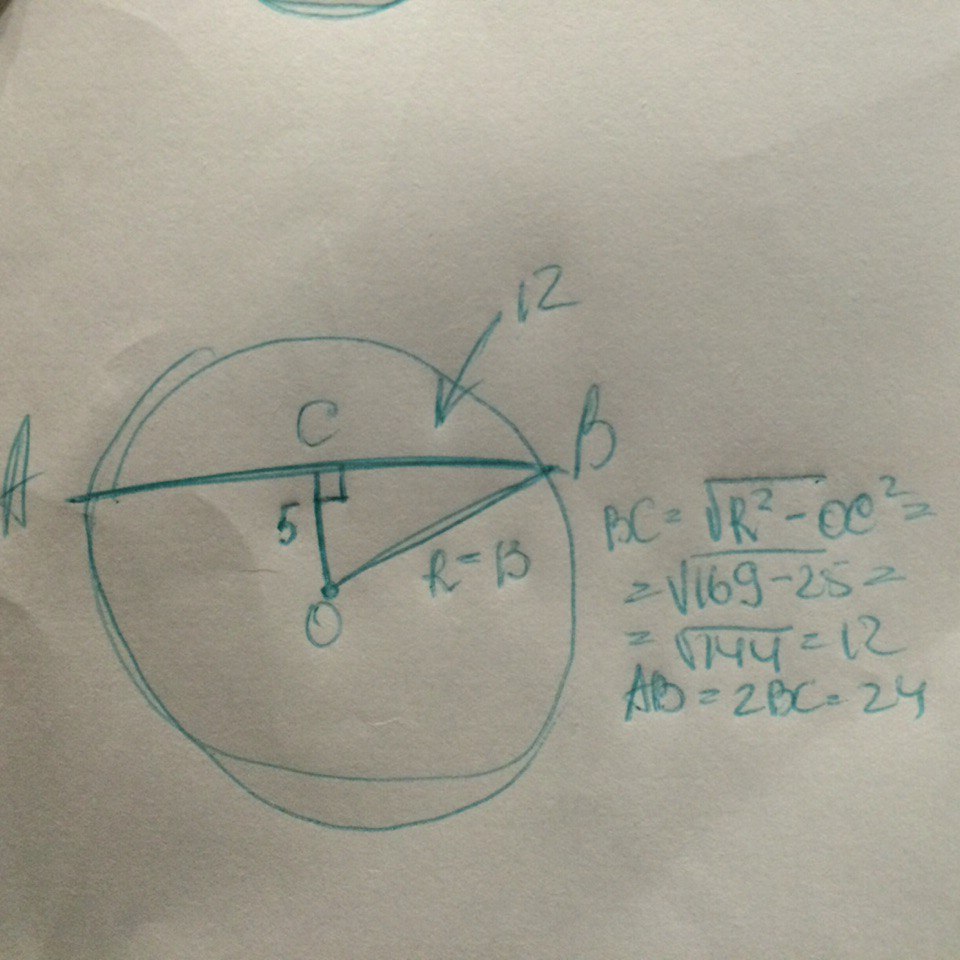 12
C
A
B
5
R=13
O
BC = √R² - OC² =
= √169-25 =
= √144 = 12
AB = 2BC = 24